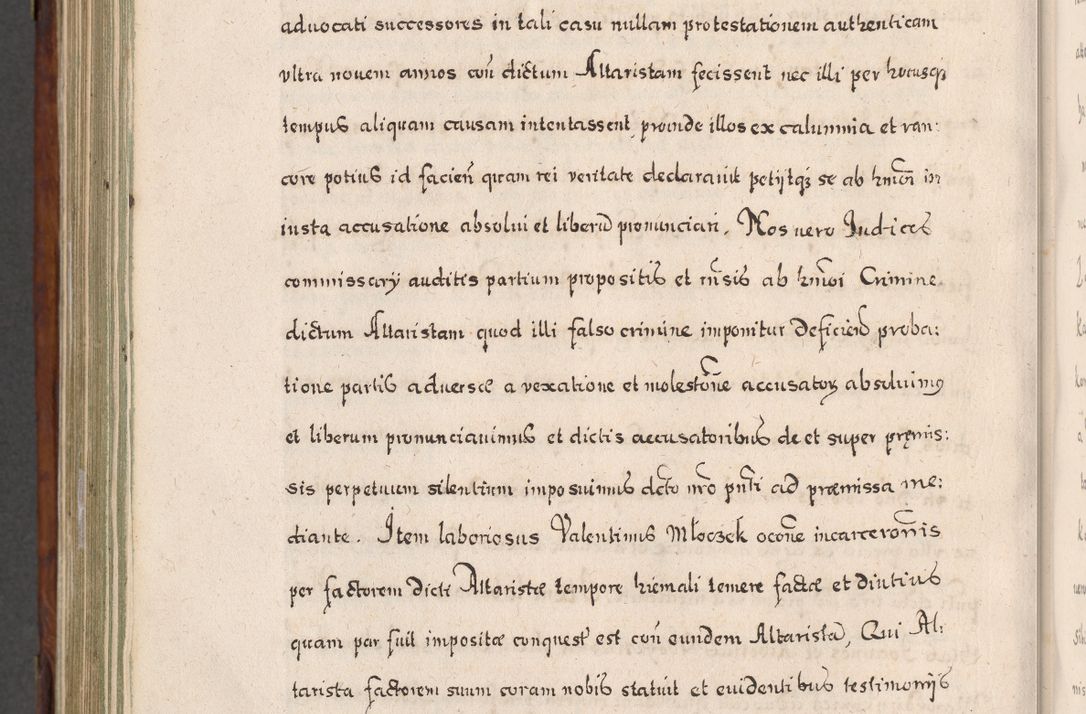 aduocati successores in tali casu nullam protestationem authenticam
vltra nouem annos coñ dictum Altaristam fecissent nec illi per hucusq3
tempus aliquam causam intentassent, proinde illos ex calumnia et ran:
core potius id facien̄ quam rei veritate declarauit petijtq3 se ab hm̄oi in
iusta accusatione absolui et liberū pronunciari. Nos vero Judices
commissarÿ auditis partium propositis et rn̄sis ab hm̄oi Crimine
dictum Altaristam quod illi falso crimine imponitur deficien̄ proba:
tione partis aduersæ a vexatione et molestōne accusatoꝝ absoluimꝰ
et liberum pronunciauimus et dictis accusatoribus de et super pręmis:
sis perpetuum silentium imposuimus dc̄to nr̄o pn̄ti ad præmissa me:
diante. Item laboriosus Valentinus Młoczek ocōne incarcerōnis
per factorem dicti Altaristæ tempore hiemali temere factæ et diutius
quam par fuit impositæ conquest⁹ est coñ eundem Altaristā, Qui Al:
tarista factorem suum coram nobis statuit et euidentibus testimonijs